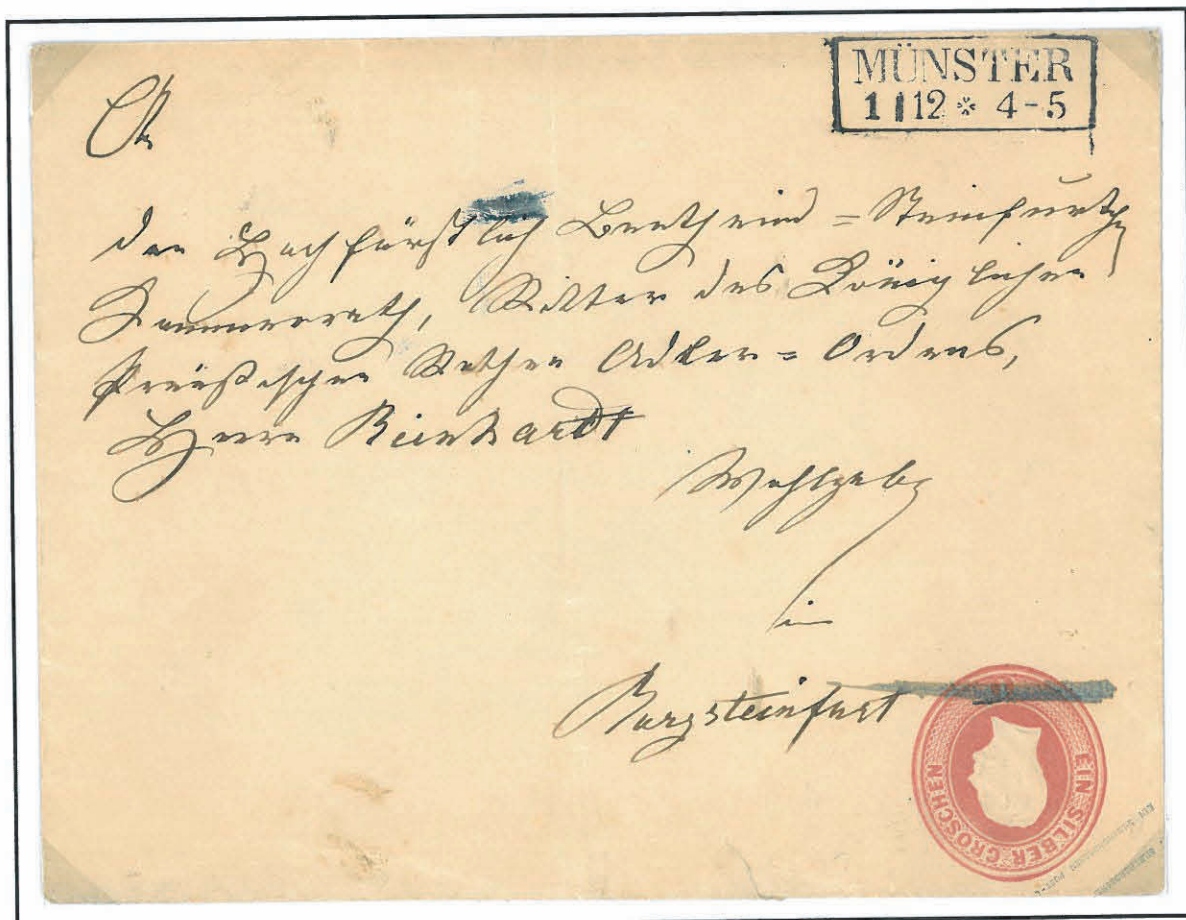 MÜNSTER
1 12 * 4-5
An
den Hochfürstlich Bentheim = Steinfurtschen
Kammerrath, Ritter des Königlichen
Preußischen Rothen Adler = Ordens,
Herrn Reinhardt
Wohlgeb
in
Burgsteinfurt
EIN SILBER GROSCHEN